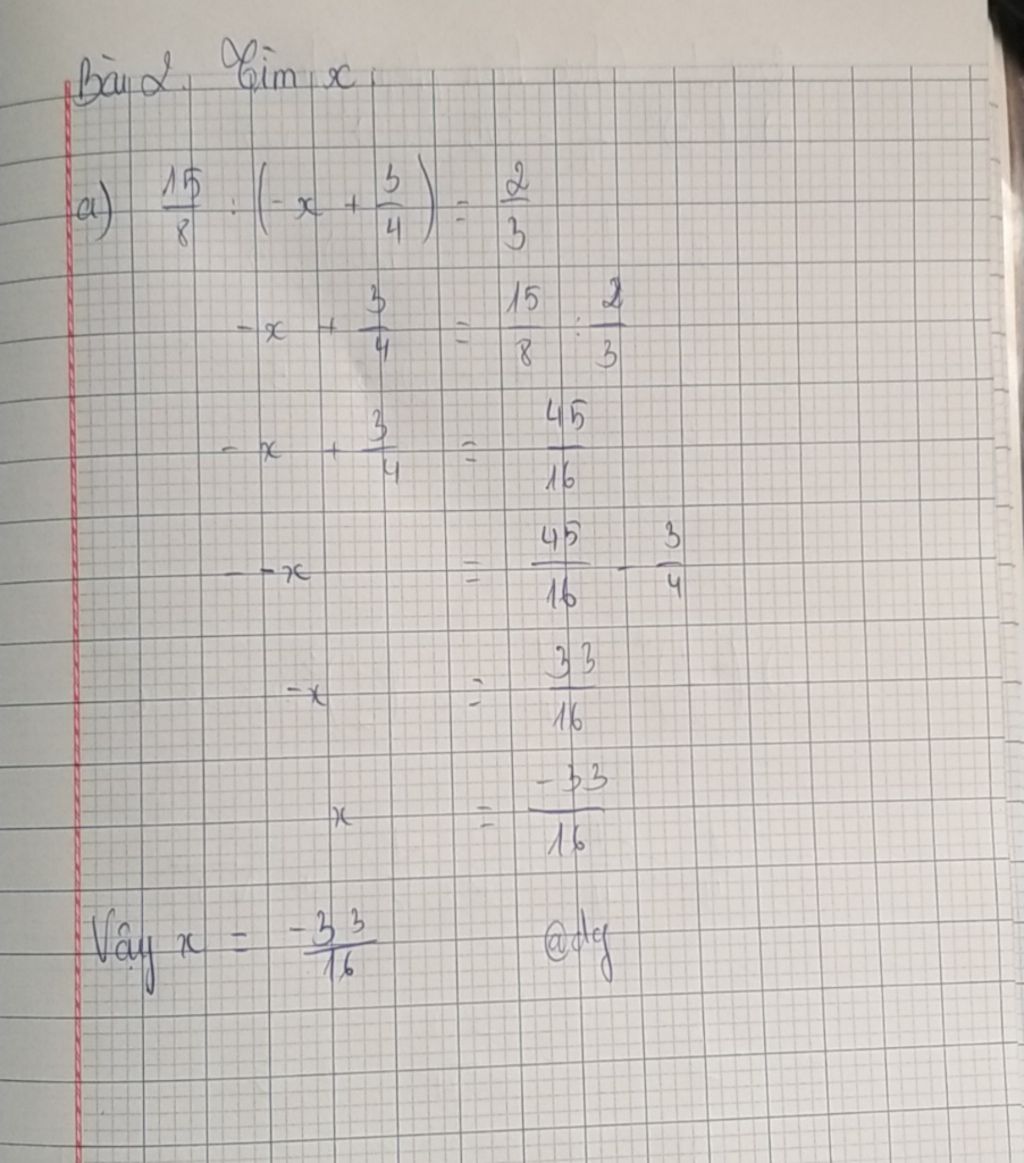 Bài 2. Tìm x
a) 15/8 : (-x + 3/4) = 2/3
-x + 3/4 = 15/8 : 2/3
-x + 3/4 = 45/16
- -x = 45/16 - 3/4
-x = 33/16
x = -33/16
Vậy x = -33/16 @dtg